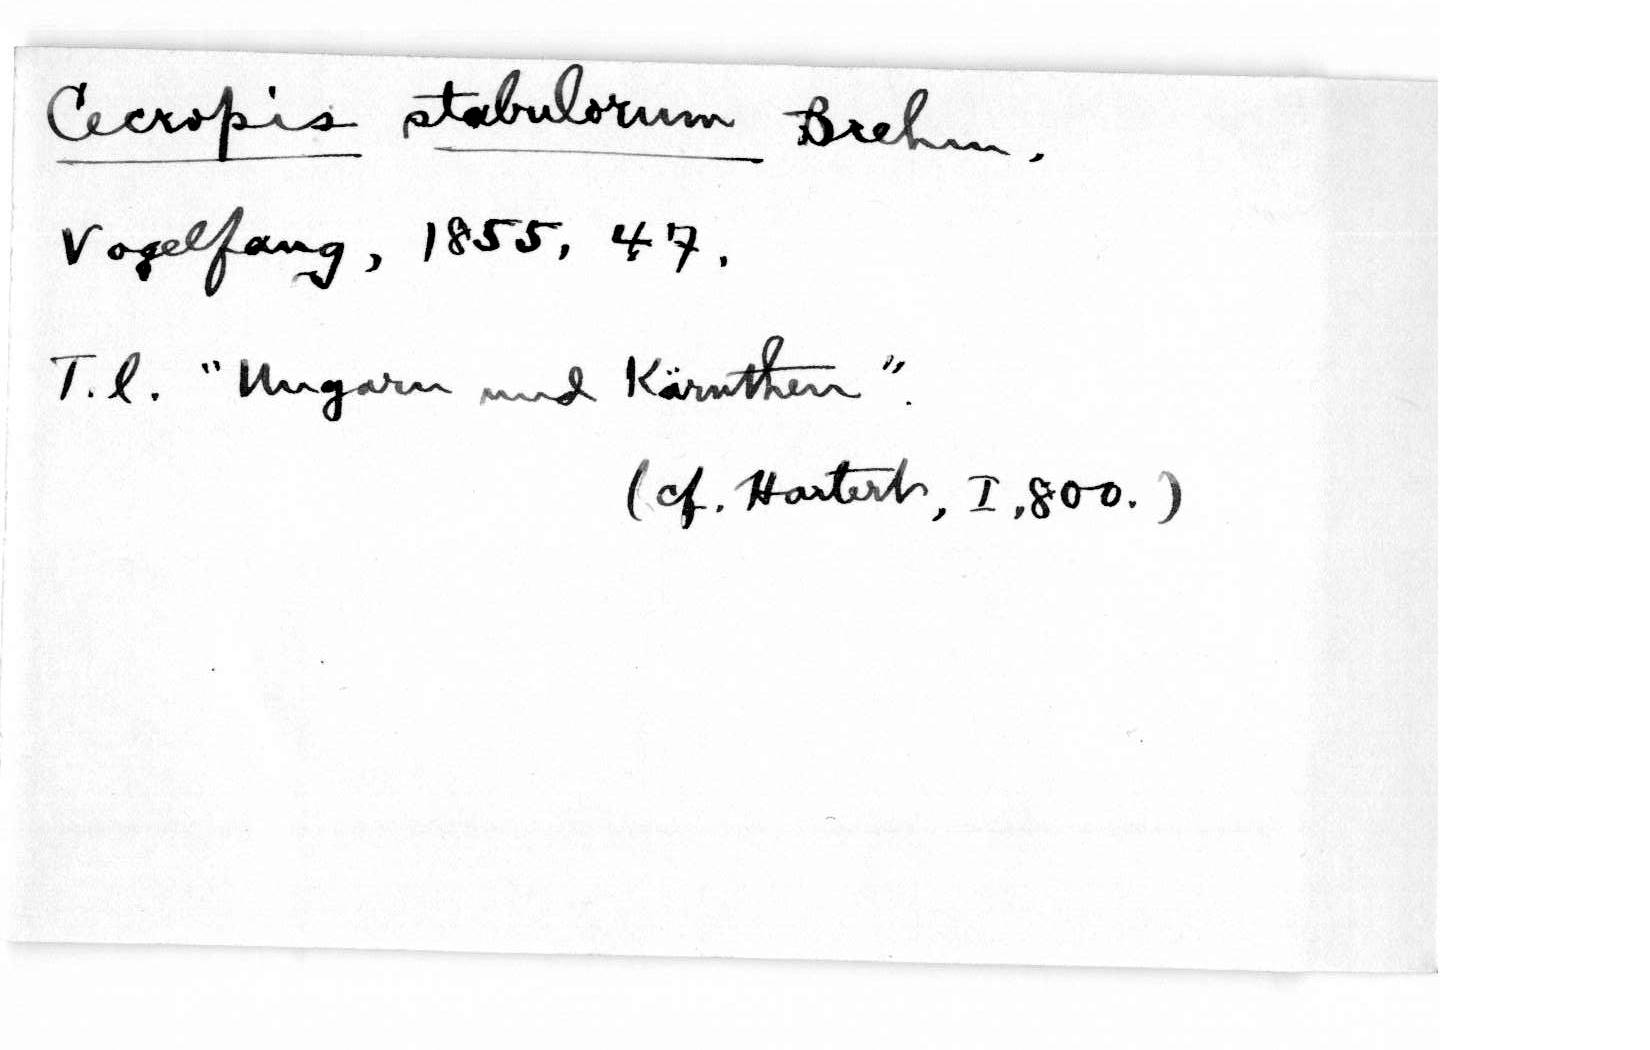 Cecropis stabulorum Brehm,
Vogelfang, 1855, 47.
T.l. "Ungarn und Kärnthen".
(cf. Hartert, I, 800.)